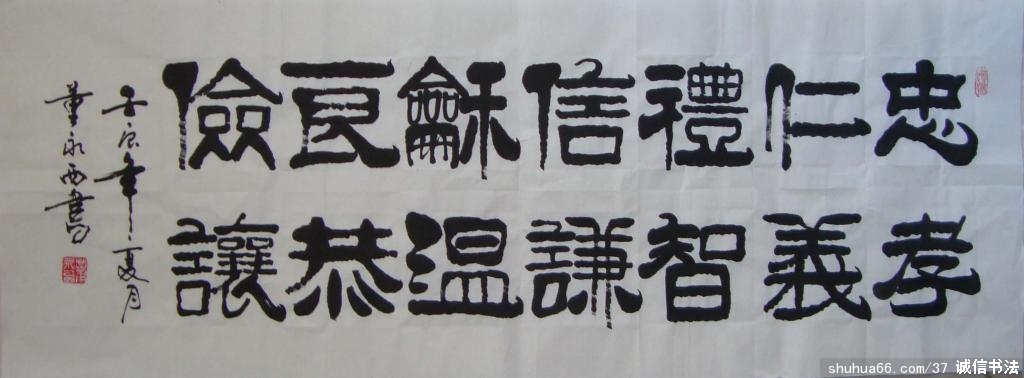 忠孝
仁義
禮智
信謙
龢温
良恭
儉讓
壬辰年夏月
董永西書
shuhua66.com/37 诚信书法